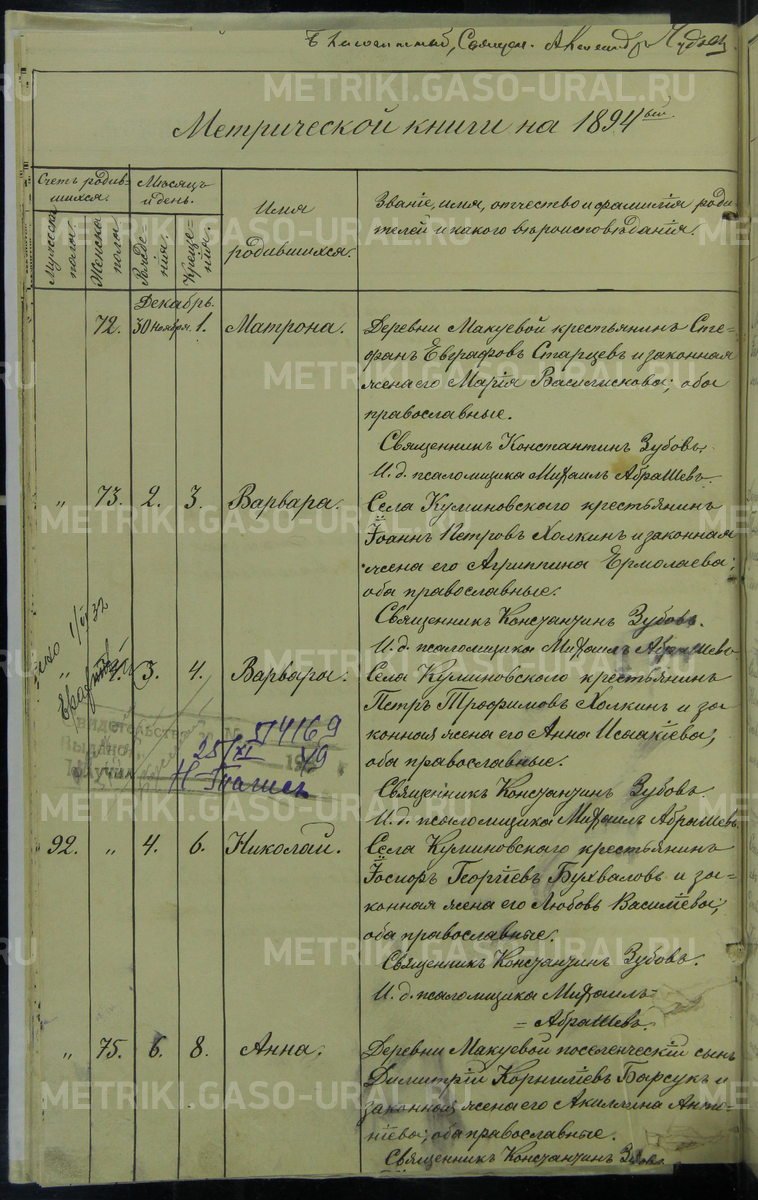 METRIKI.GASO-URAL.RU
Метрической книги на 1894ый.
Счетъ родив-
шихся.
Мѣсяцъ
и день.
Имя
родившихся.
Званіе, имя, отчество и фамилія роди-
телей и какого вѣроисповѣданія.
Мужеска
пола.
Женска
пола.
Рожде-
нія.
Креще-
нія.
Декабрь.
72. 30 ноября. 1. Матрона. Деревни Макуевой крестьянинъ Сте-
фанъ Евграфовъ Старцевъ и законная
жена его Марія Василискова; оба
православные.
Священникъ Константинъ Зубовъ.
И. д. псаломщика Михаилъ Абрашевъ.
„ 73. 2. 3. Варвара. Села Куминовского крестьянинъ
Іоаннъ Петровъ Холкинъ и законная
жена его Агриппина Ермолаева;
оба православные.
Священникъ Константинъ Зубовъ.
И. д. псаломщика Михаилъ Абрашевъ
„ 3. 4. Варвара. Села Куминовского крестьянинъ
Петръ Трофимовъ Холкинъ и за-
конная жена его Анна Исаакіева;
оба православные.
Священникъ Константинъ Зубовъ.
И. д. псаломщика Михаилъ Абрашевъ.
92. „ 4. 6. Николай. Села Куминовского крестьянинъ
Іосифъ Георгіевъ Бухваловъ и за-
конная жена его Любовь Василіева;
оба православные.
Священникъ Константинъ Зубовъ.
И. д. псаломщика Михаилъ
= Абрашевъ.
„ 75. 6. 8. Анна. Деревни Макуевой поселенческій сынъ
Димитрій Корниліевъ Барсукъ и
законная жена его Акилина Анто-
ніева; оба православные.
Священникъ Константинъ Зубовъ